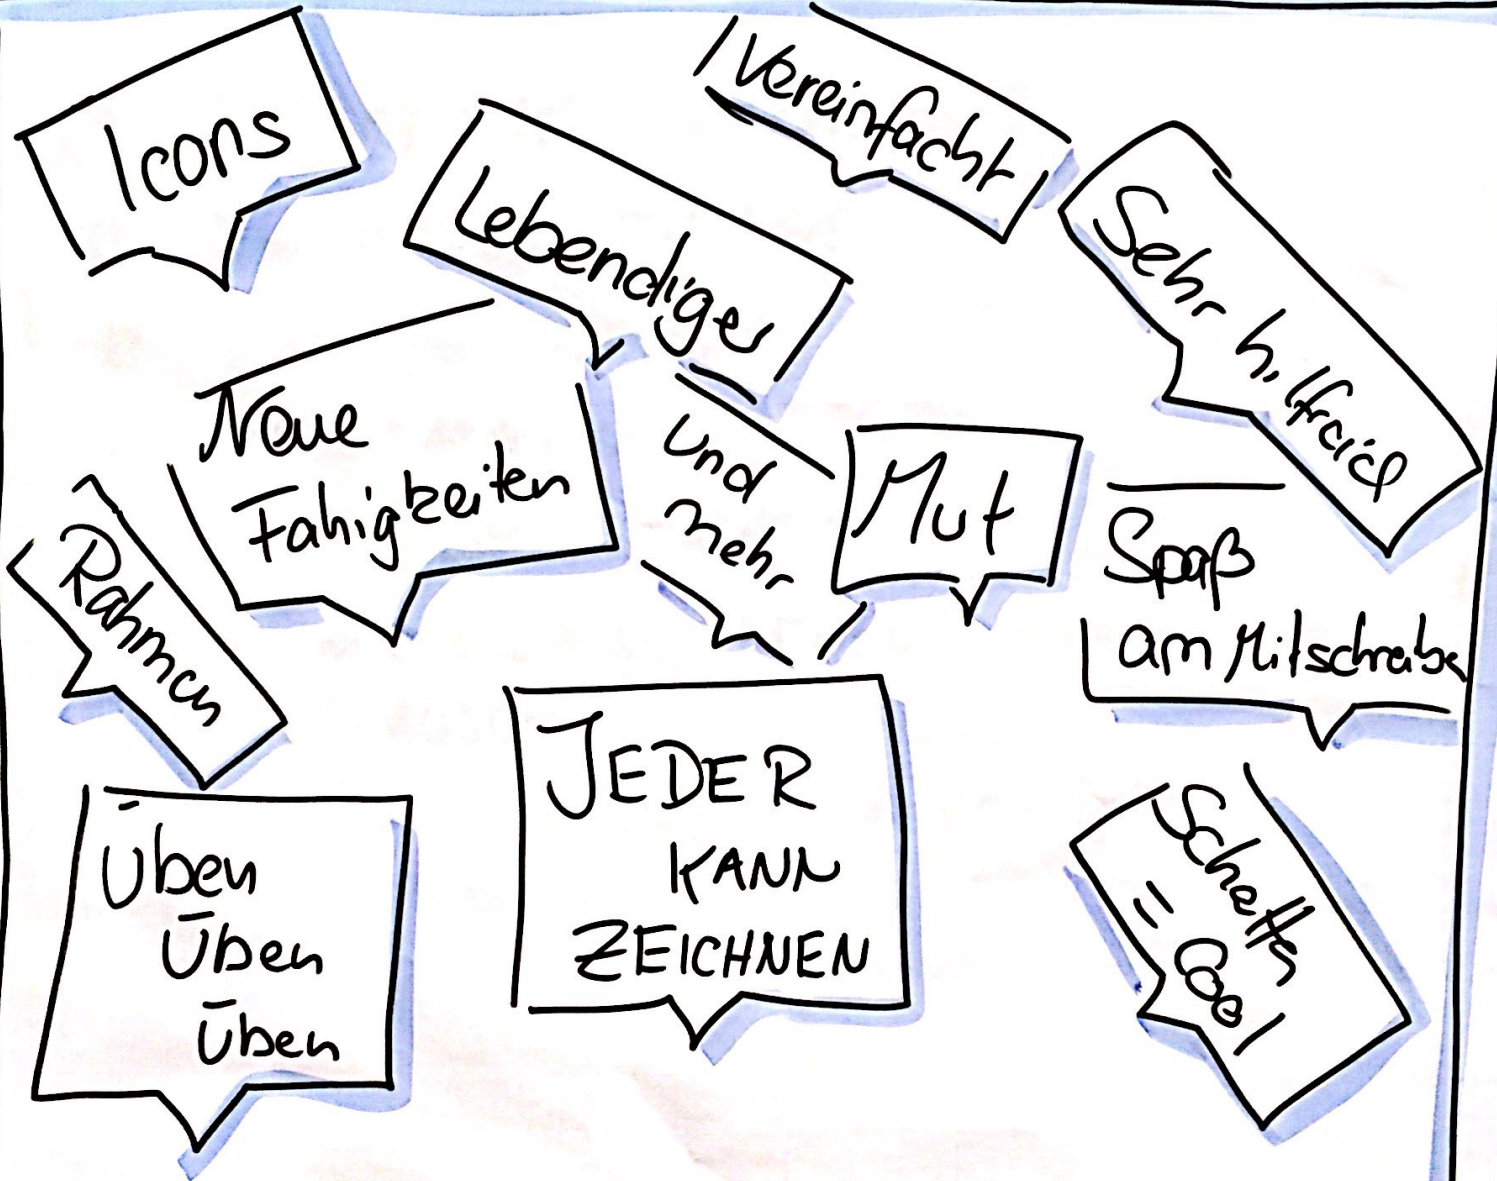 Icons
Vereinfacht
Lebendiger
Sehr hilfreich
Neue
Fähigkeiten
und
mehr
Mut
Spaß
am Mitschreibe
Rahmen
Üben
Üben
Üben
JEDER
KANN
ZEICHNEN
Schatten
= Cool